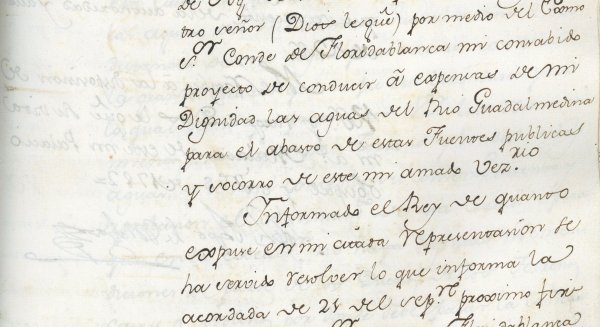 tro señor (Dios le gūe) por medio del Exmo
S.or Conde de Floridablanca mi consabido
proyecto de conducir â expensas de mi
Dignidad las aguas del Rio Guadalmedina
para el abasto de estas Fuentes publicas
y socorro de este mi amado Vez.rio
Informado el Rey de quanto
expuse en mi citada Representacion se
ha servido resolver lo que informa la
acordada de 21 del sep.re proximo
Floridablanca